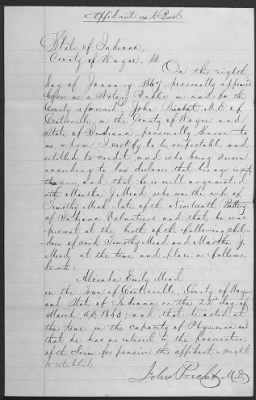 Affidavit as to Birth
State of Indiana,
County of Wayne, SS.
On this eighth
day of January 1867, personally appeared
before me a Notary Public in and for the
County aforesaid John M.D. of
Centreville, in the County of Wayne and
State of Indiana personally known to
me whom I certify to be respectable and
entitled to credit and who being sworn
according to law declares that his age is
years and that he is well acquainted
with Martha J. Mead who was the wife of
Timothy Mead late of the Nineteenth Battery
of Indiana Volunteers and that he was
present at the birth of the following chil-
dren of said Timothy Mead and Martha J.
Mead at the time and place as follows,
to wit:
Emily Mead
in the town of Centreville, County of Wayne
and State of Indiana on the 22d day of
March AD. 1863; and that he acted at
the time in the capacity of Physician and
that he has no interest in the prosecution
of the claim for pension this affidavit is sought
to establish.
John M.D.